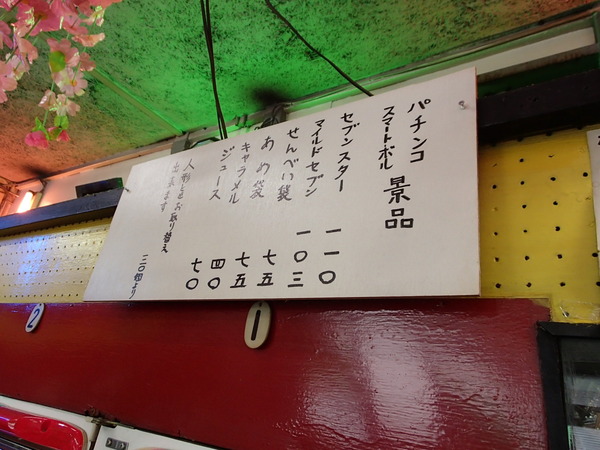 パチンコ
スマートボール 景品
セブンスター 一一〇
マイルドセブン 一〇三
せんべい袋 七五
あめ袋 七五
キャラメル 四〇
ジュース 七〇
人形とお取り替え
出来ます 二〇個より
1
2